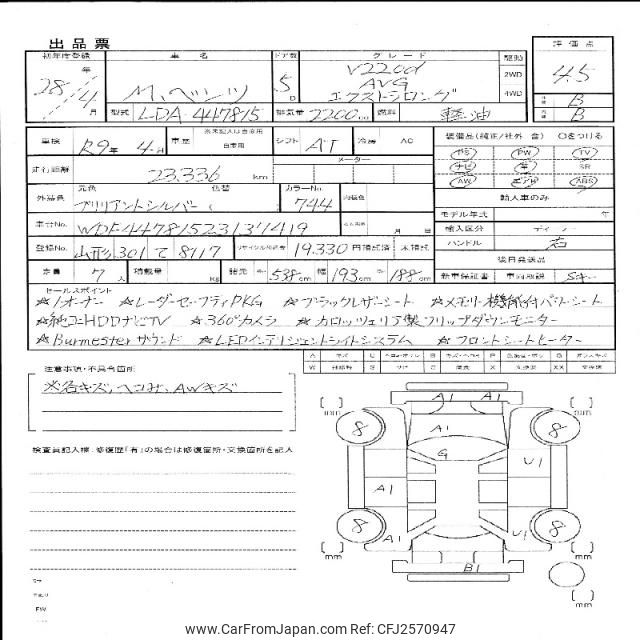 出品票
初年度登録 車名 ドア数 グレード 駆動 評価点
28年 4月 M.ベンツ 5 V220d AVG エクストラロング 2WD 4WD 4.5
型式 LDA-447815 排気量 2200 cc 燃料 軽油 B B
車検 R9年 4月 車歴 自家用 シフト AT 冷房 AC 装備品(純正/社外 含) ○をつける
PS PW TV
走行距離 23,336 メーター ナビ 革 SR
AW エアB ABS
外装色 元色 ブリリアントシルバー カラーNo. 744 内装色 輸入車のみ
モデル年式 年
車台No. WDF44781523131419 月 日 輸入区分 ディーラー
登録No. 山形 301 て 8117 リサイクル預託金 19,330 円預託済 未預託 ハンドル 右
後日発送品
定員 7人 積載量 kg 諸元 長 538cm 幅 193cm 高 188cm 新車保証書 車両取説
セールスポイント
☆1オーナー ☆レーダーセーフティPKG ☆ブラックレザーシート ☆メモリー機能付パワーシート
☆純正HDDナビTV ☆360°カメラ ☆カロッツェリア製フリップダウンモニター
☆Burmesterサウンド ☆LEDインテリジェントライトシステム ☆フロントシートヒーター
注意事項・不具合箇所
※各キズ,ヘコみ,AWキズ
検査員記入欄:修復歴「有」の場合は修復箇所・交換箇所を記入
[ ] mm [ ] mm
8 A1 A1 8
A1
G
U1
A1
8 A1 U1 8
[ ] mm B1 [ ] mm
[ ] mm
www.CarFromJapan.com Ref: CFJ2570947